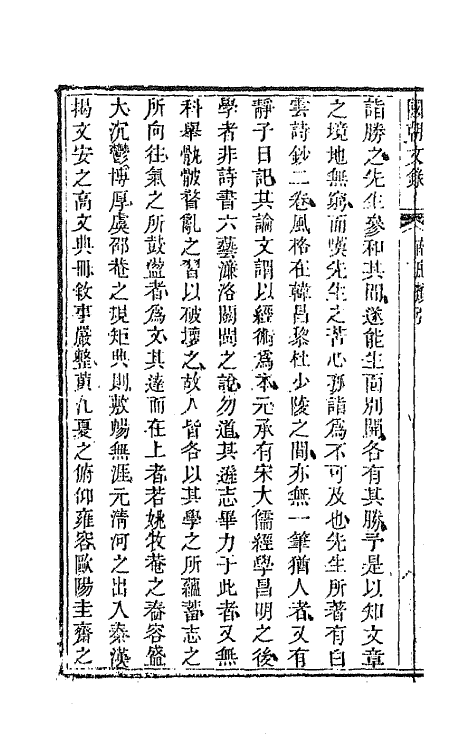 國朝文錄
詣勝之先生參和其間遂能生面別開各有其勝予是以知文章
之境地無窮而嘆先生之苦心孤詣爲不可及也先生所著有白
雲詩鈔二卷風格在韓昌黎杜少陵之間亦無一筆猶人者又有
靜子日記其論文謂以經術爲本元承有宋大儒經學昌明之後
學者非詩書六藝濂洛關閩之說勿道其遜志畢力于此者又無
科舉骫骳瞀亂之習以破壞之故人皆各以其學之所蘊蓄志之
所向往氣之所鼓盪者爲文其達而在上者若姚牧菴之舂容盛
大沉鬱博厚虞邵菴之規矩典則敷暢無涯元清河之出入秦漢
揭文安之高文典冊敘事嚴整黃九憂之俯仰雍容歐陽圭齋之